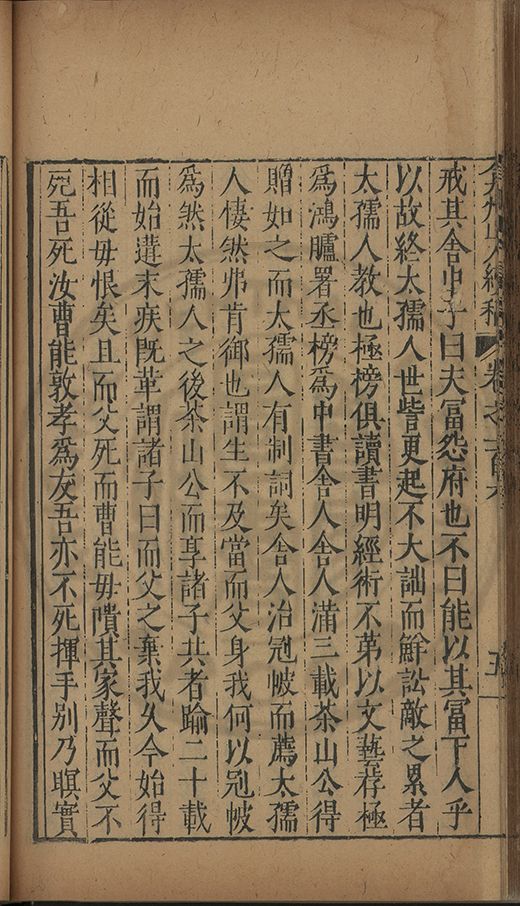 弇州山人續稿 卷之一百六 五
戒其舍中子曰夫富怨府也不曰能以其富下人乎
以故終太孺人世訾更起不大詘而鮮訟敵之累者
太孺人教也極榜俱讀書明經術不第以文藝存極
爲鴻臚署丞榜爲中書舍人舍人滿三載茶山公得
贈如之而太孺人有制詞矣舍人治冠帔而薦太孺
人悽然弗肯御也謂生不及當而父身我何以冠帔
爲然太孺人之後茶山公而享諸子共者踰二十載
而始遘末疾旣革謂諸子曰而父之棄我久今始得
相從毋恨矣且而父死而曹能毋隤其家聲而父不
死吾死汝曹能敦孝爲友吾亦不死揮手別乃瞑實